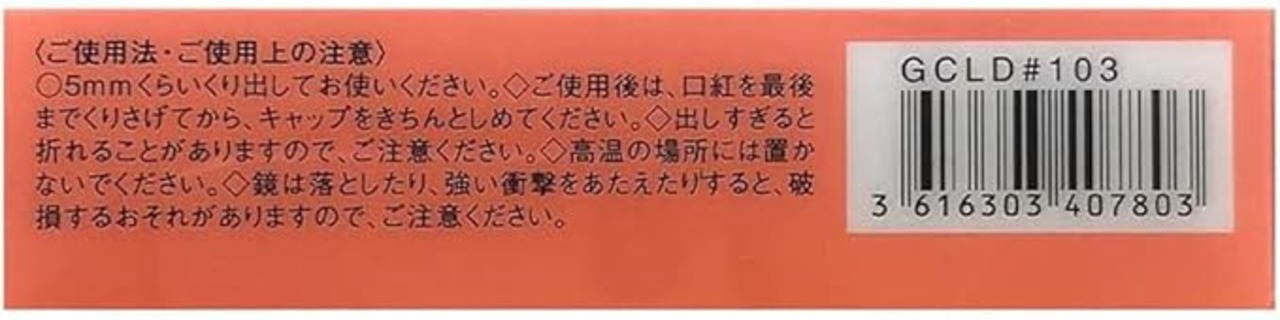 〈ご使用法・ご使用上の注意〉
○5mmくらいくり出してお使いください。◇ご使用後は、口紅を最後
までくりさげてから、キャップをきちんとしめてください。◇出しすぎると
折れることがありますので、ご注意ください。◇高温の場所には置か
ないでください。◇鏡は落としたり、強い衝撃をあたえたりすると、破
損するおそれがありますので、ご注意ください。
GCLD#103
3 616303 407803